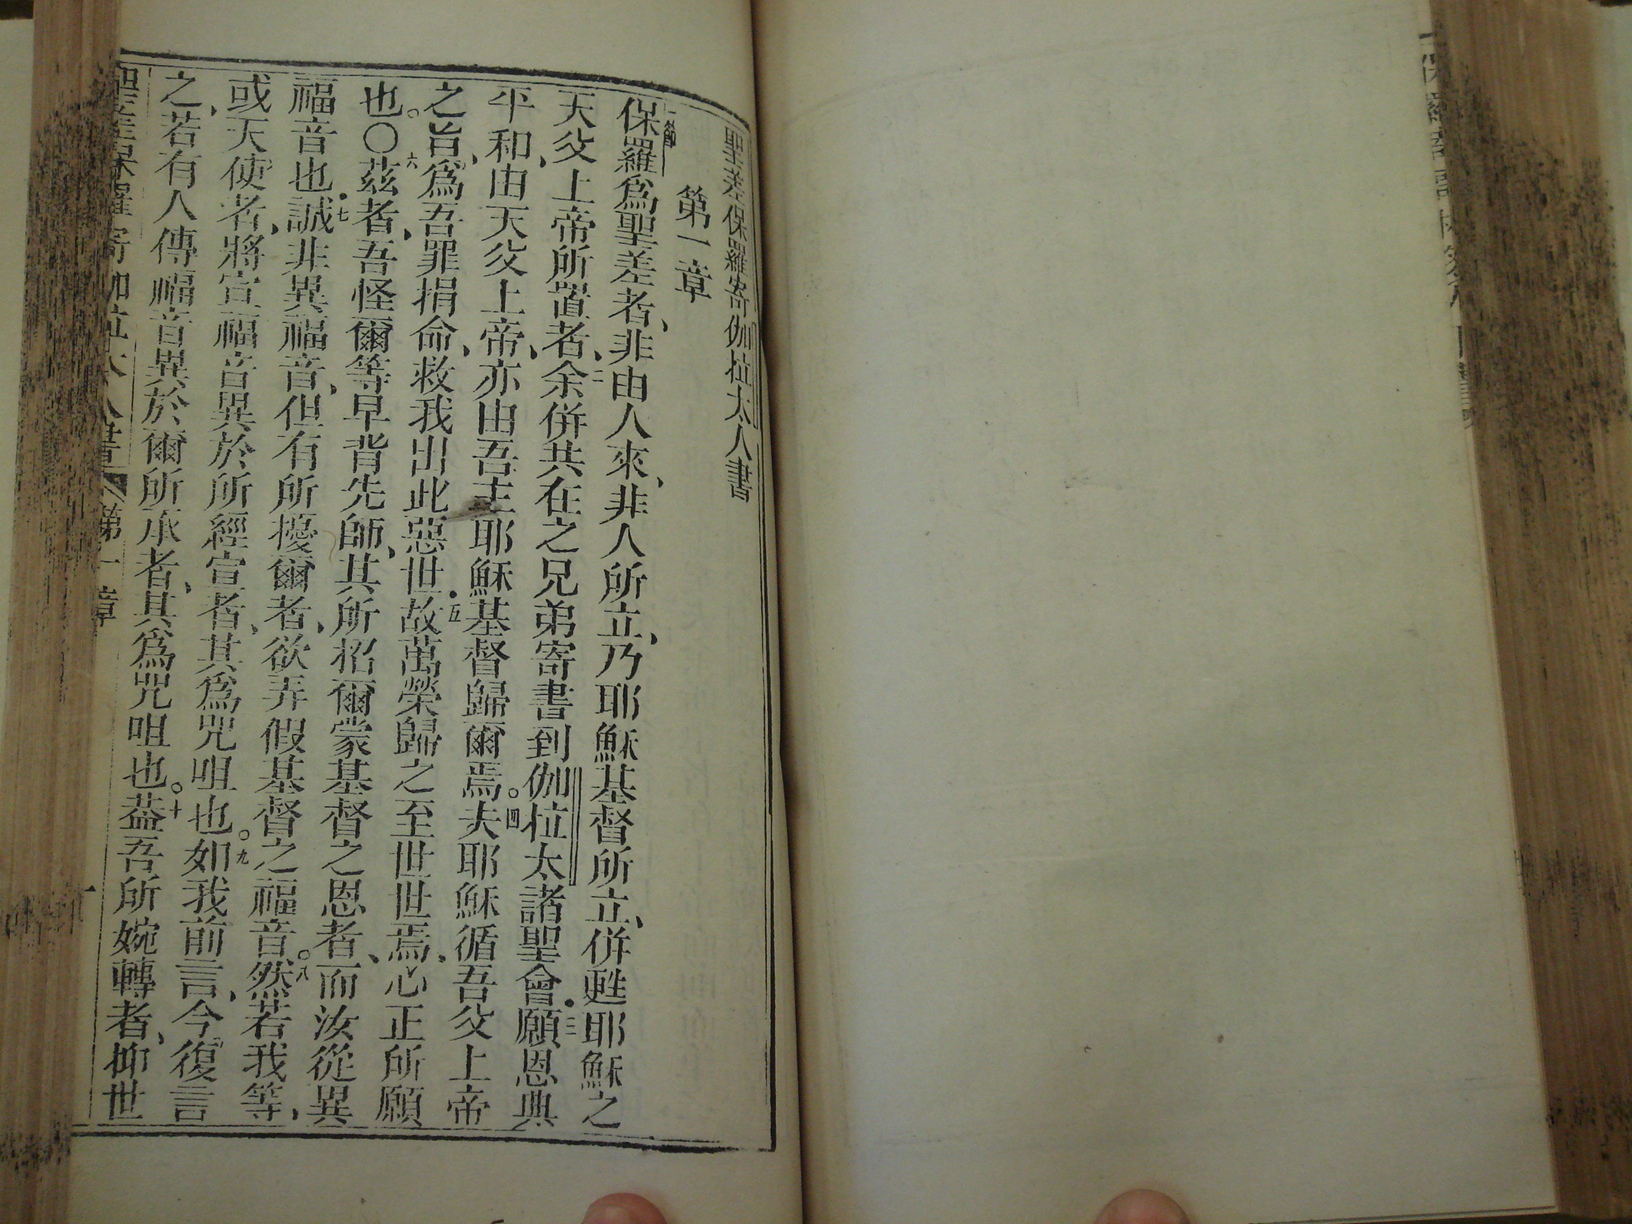 聖差保羅寄伽拉太人書
第一章
一節保羅爲聖差者、非由人來、非人所立、乃耶穌基督所立、併甦耶穌之
天父上帝所置者、二余併共在之兄弟寄書到伽拉太諸聖會．三願恩典
平和、由天父上帝、亦由吾主耶穌基督歸爾焉。四夫耶穌循吾父上帝
之旨、爲吾罪捐命、救我出此惡世．五故萬榮歸之至世世焉、心正所願
也。〇六茲者、吾怪爾等早背先師、其所招爾蒙基督之恩者、而汝從異
福音也．七誠非異福音、但有所擾爾者、欲弄假基督之福音。八然若我等、
或天使者、將宣福音異於所經宣者、其爲咒咀也。九如我前言、今復言
之、若有人傳福音異於爾所承者、其爲咒咀也。十葢吾所婉轉者、抑世
聖差保羅寄伽拉太人書 第一章